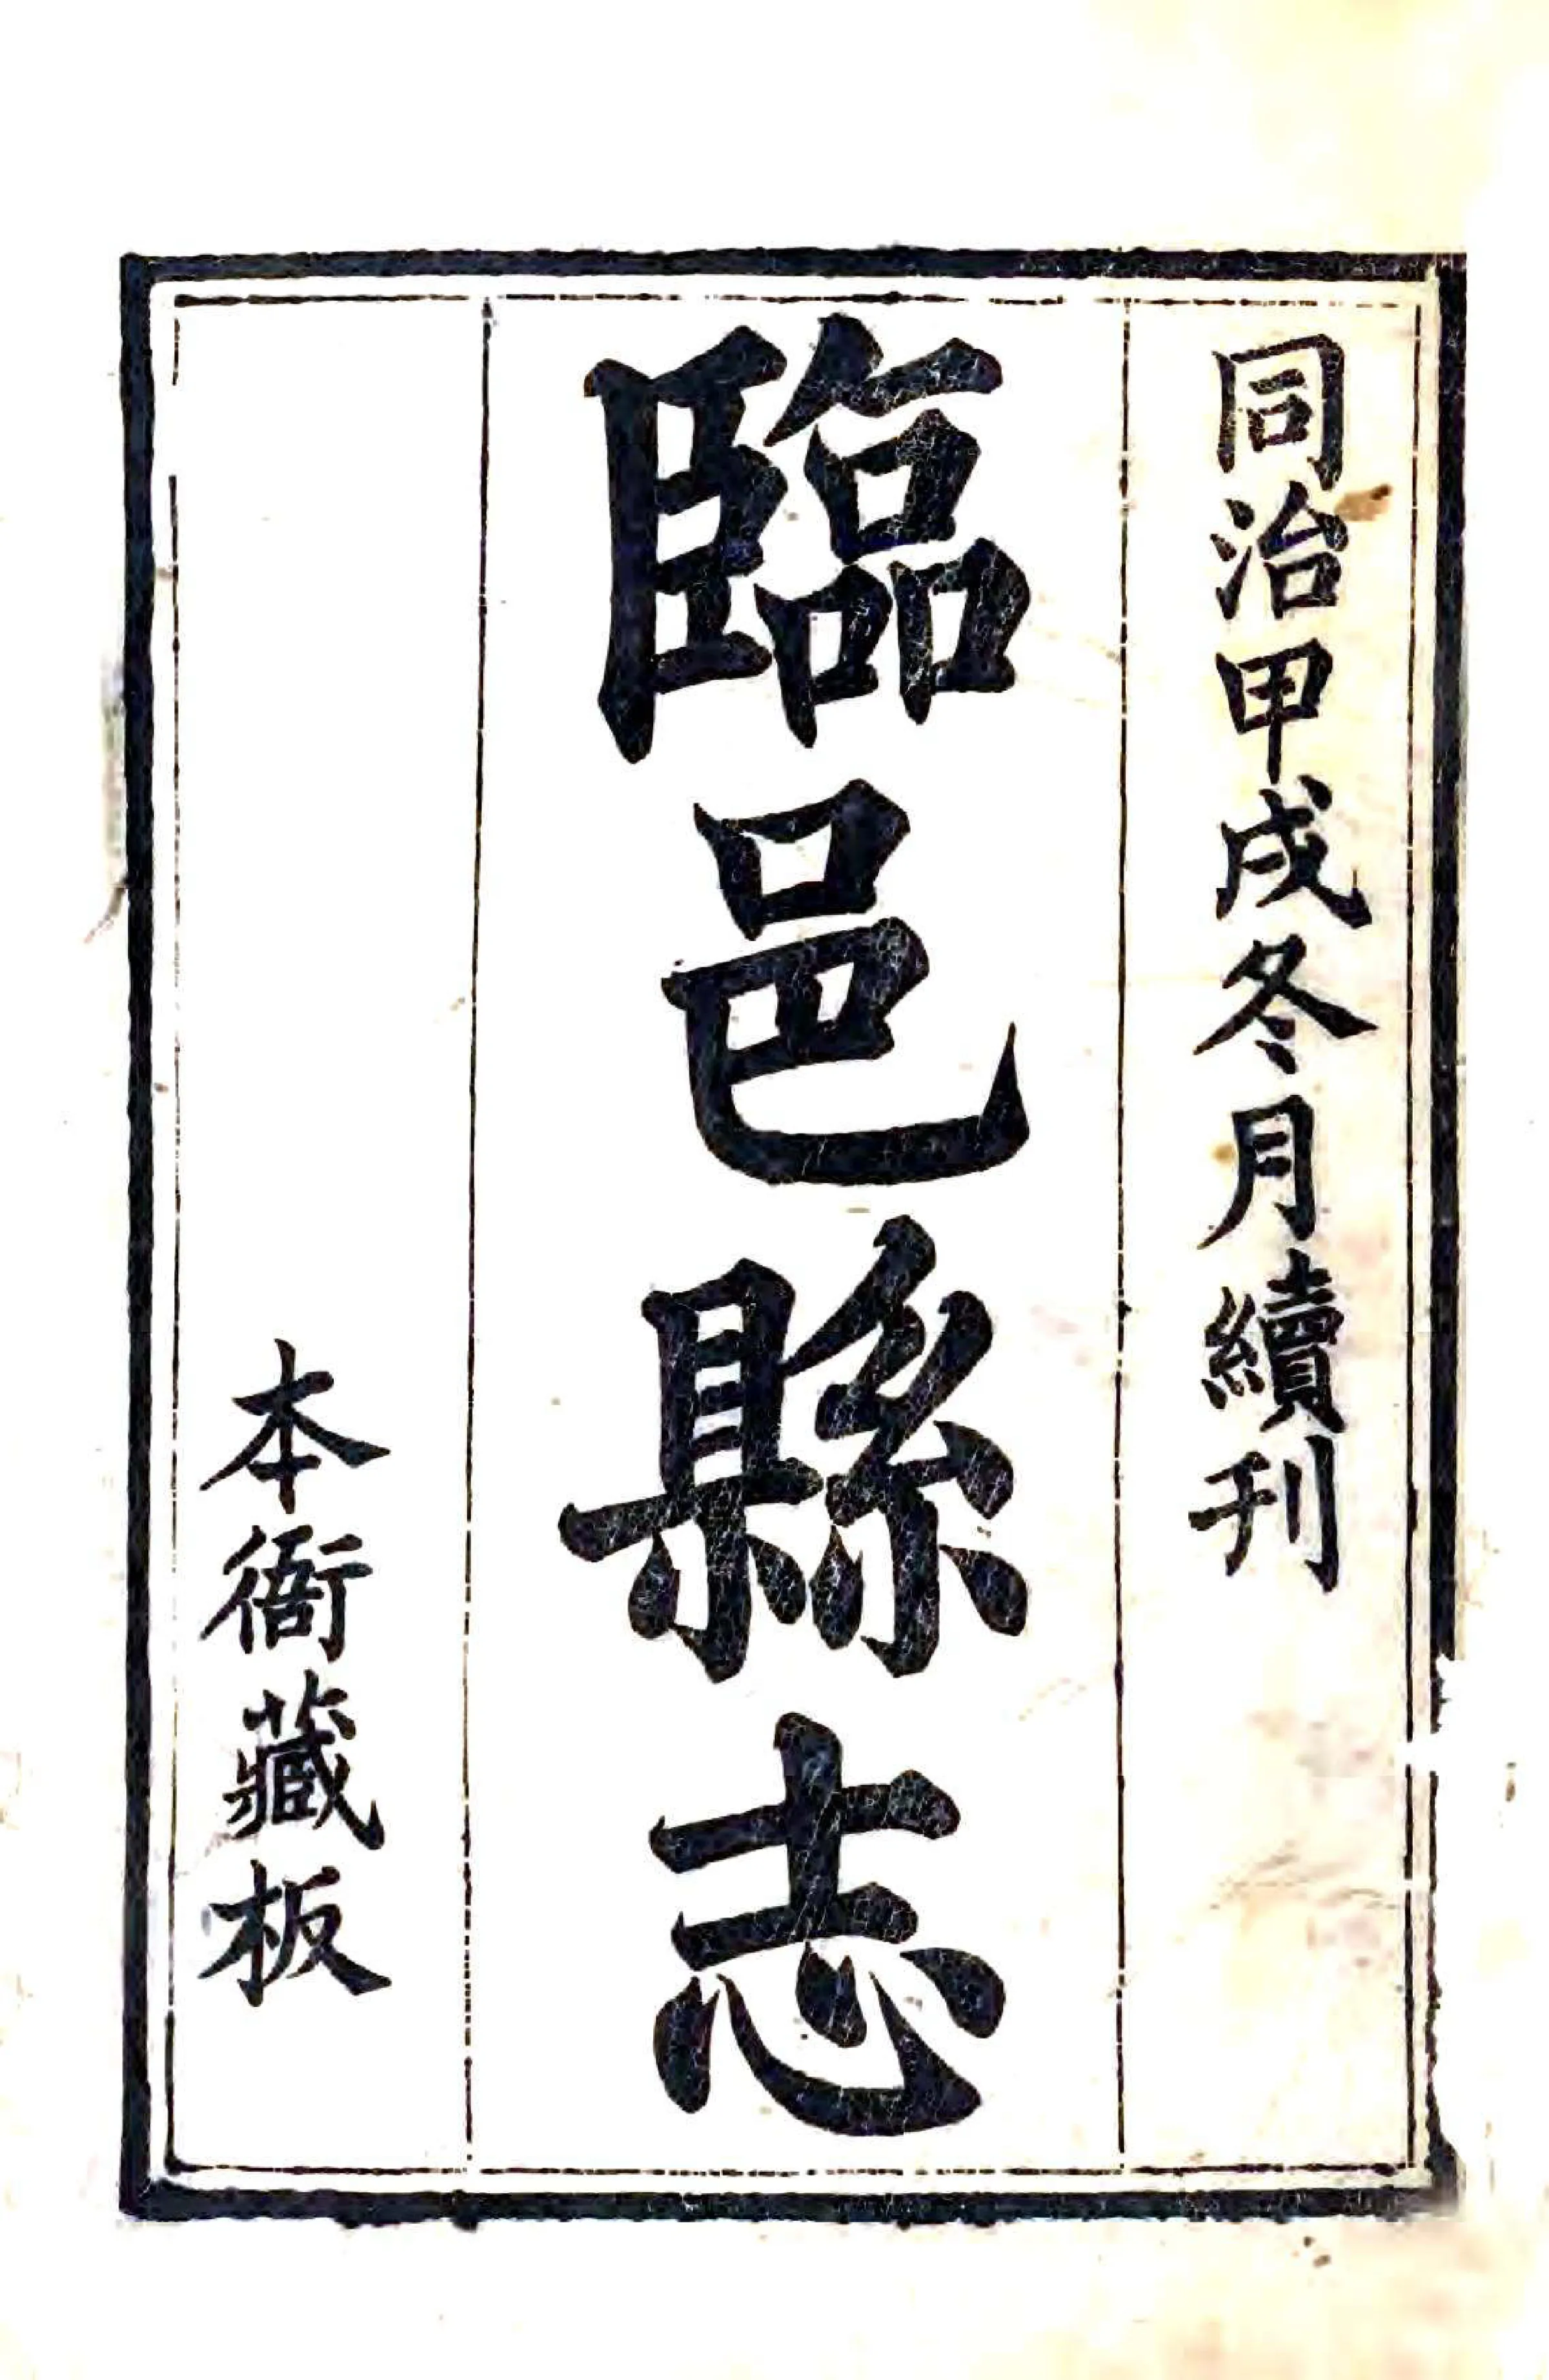 同治甲戌冬月續刊
臨邑縣志
本衙藏板